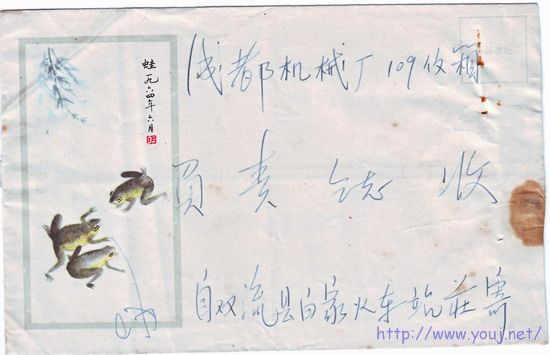 成都机械厂109仪箱
收
自双流县白家火车站莊寄
蛙
一九六四年六月
http://www.youj.net/